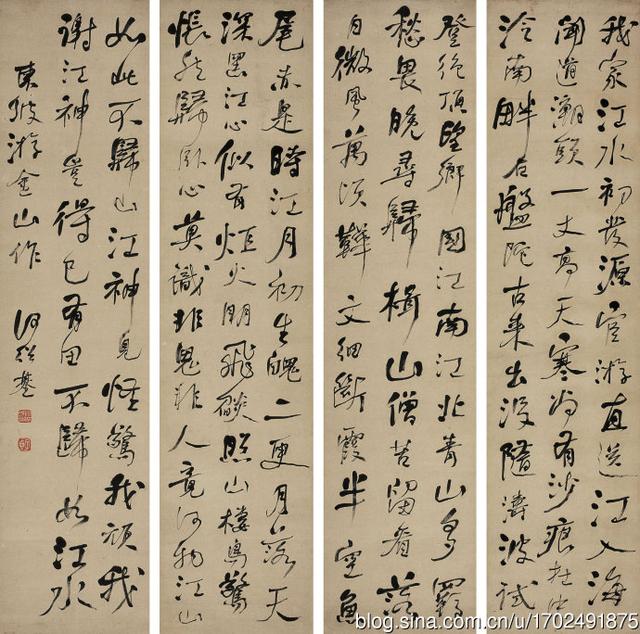 我家江水初發源宦游直送江入海
聞道潮頭一丈高天寒尚有沙痕在中
泠南畔石盤陀古來出沒隨濤波試
登絕頂望鄉國江南江北青山多羈
愁畏晚尋歸楫山僧苦留看落
日微風萬頃鞾文細斷霞半空魚
尾赤是時江月初生魄二更月落天
深黑江心似有炬火明飛燄照山棲鳥驚
悵然歸臥心莫識非鬼非人竟何物江山
如此不歸山江神見怪驚我頑我
謝江神豈得已有田不歸如江水
東坡游金山作 何紹基
blog.sina.com.cn/u/1702491875